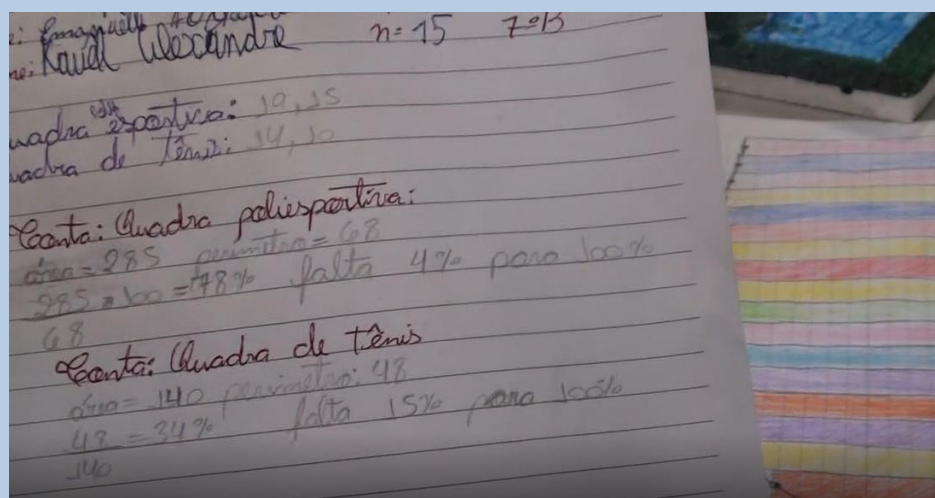 Kauã Alexandre n=15 7ºB
Quadra esportiva: 19,15
Quadra de Tênis: 14,10
Conta: Quadra poliesportiva:
área = 285 perimetro = 68
285 100 = 48% falta 4% para 100%
68
Conta: Quadra de Tênis
área = 140 perimetro: 48
48 = 34% falta 15% para 100%
140